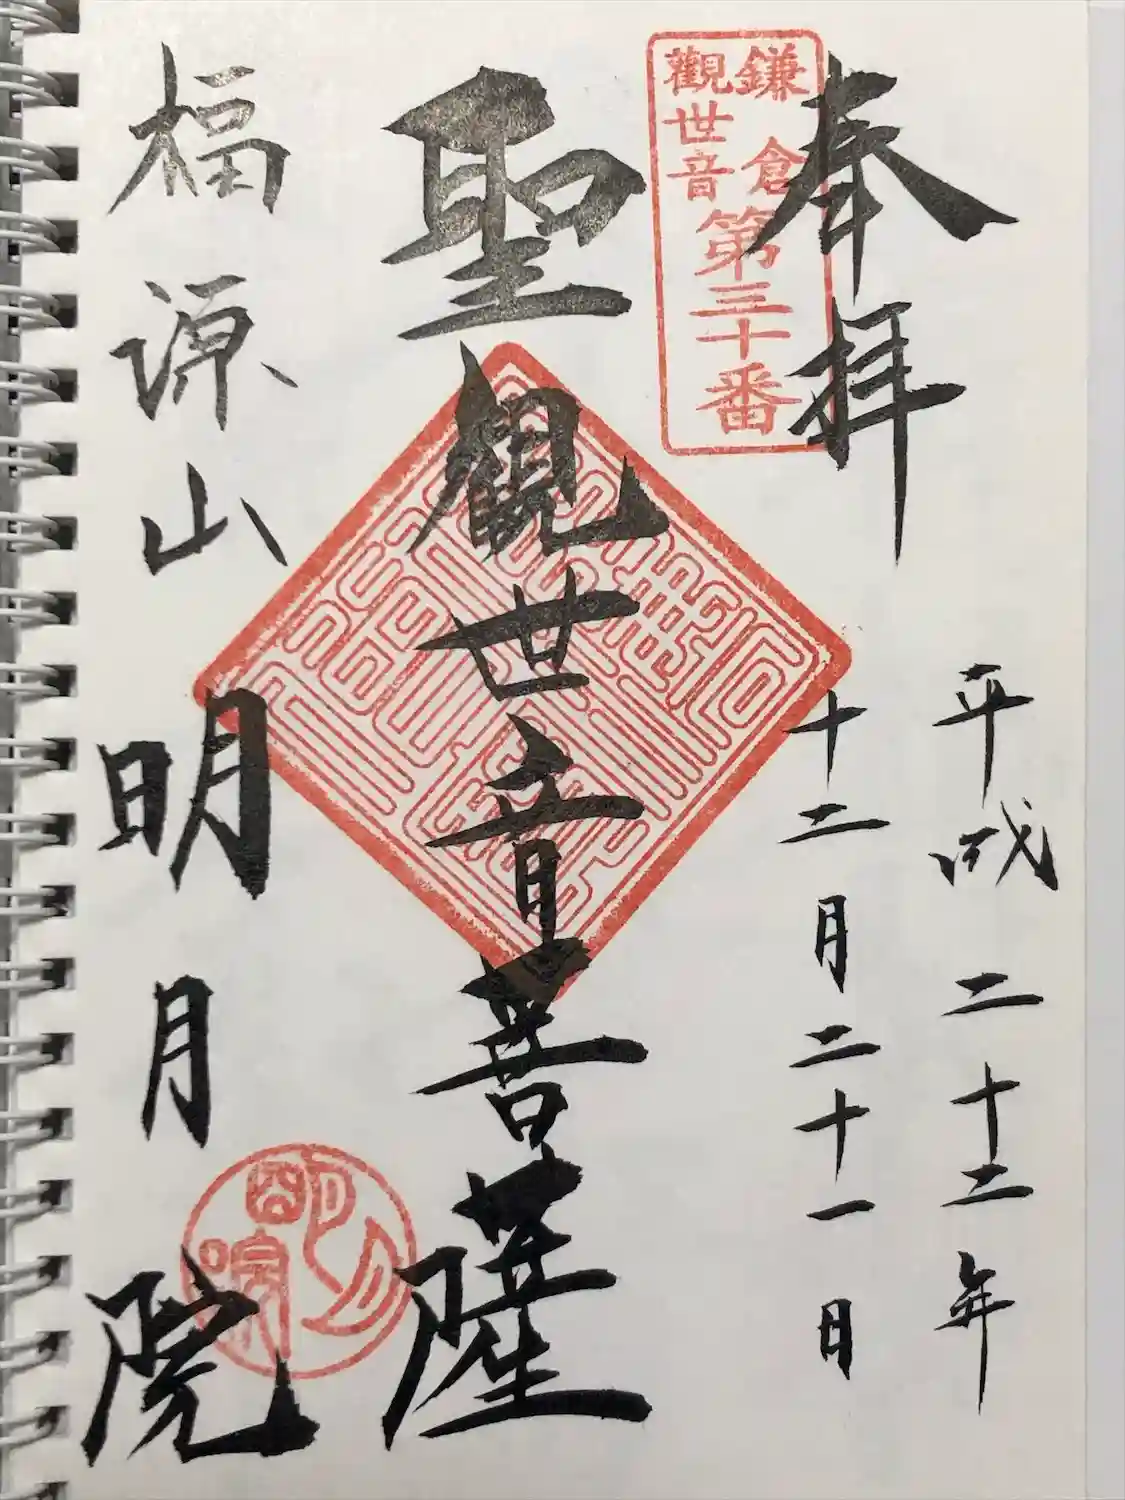 奉拝
平成二十二年
十二月二十一日
鎌倉
觀世音
第三十番
聖觀世音菩薩
福源山
明月院
明月院